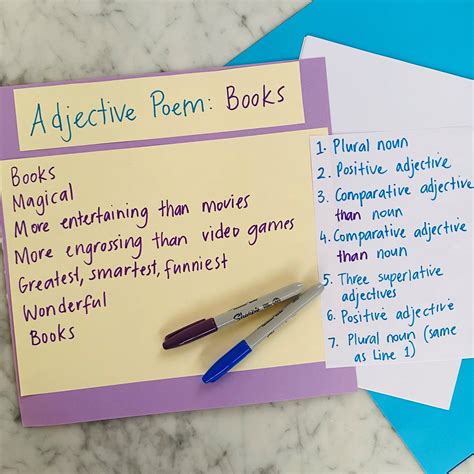 Adjective Poem: Books
Books
Magical
More entertaining than movies
More engrossing than video games
Greatest, smartest, funniest
Wonderful
Books
1. Plural noun
2. Positive adjective
3. Comparative adjective
than noun
4. Comparative adjective
than noun
5. Three superlative
adjectives
6. Positive adjective
7. Plural noun (same
as Line 1)
Sharpie